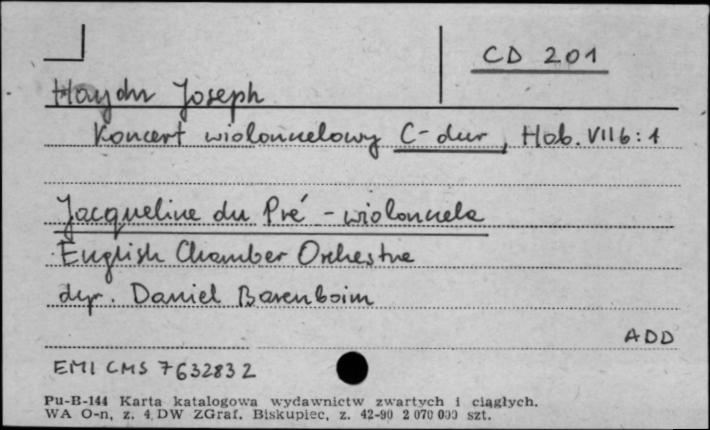 CD 201
Haydn Joseph
Koncert wiolonczelowy C-dur, Hob. VIIb:1
Jacqueline du Pré - wiolonczela
English Chamber Orchestra
dyr. Daniel Barenboim
ADD
EMI CMS 7632832
Pu-B-144 Karta katalogowa wydawnictw zwartych i ciągłych.
WA O-n, z. 4 DW ZGraf. Biskupiec, z. 42-90 2 070 000 szt.